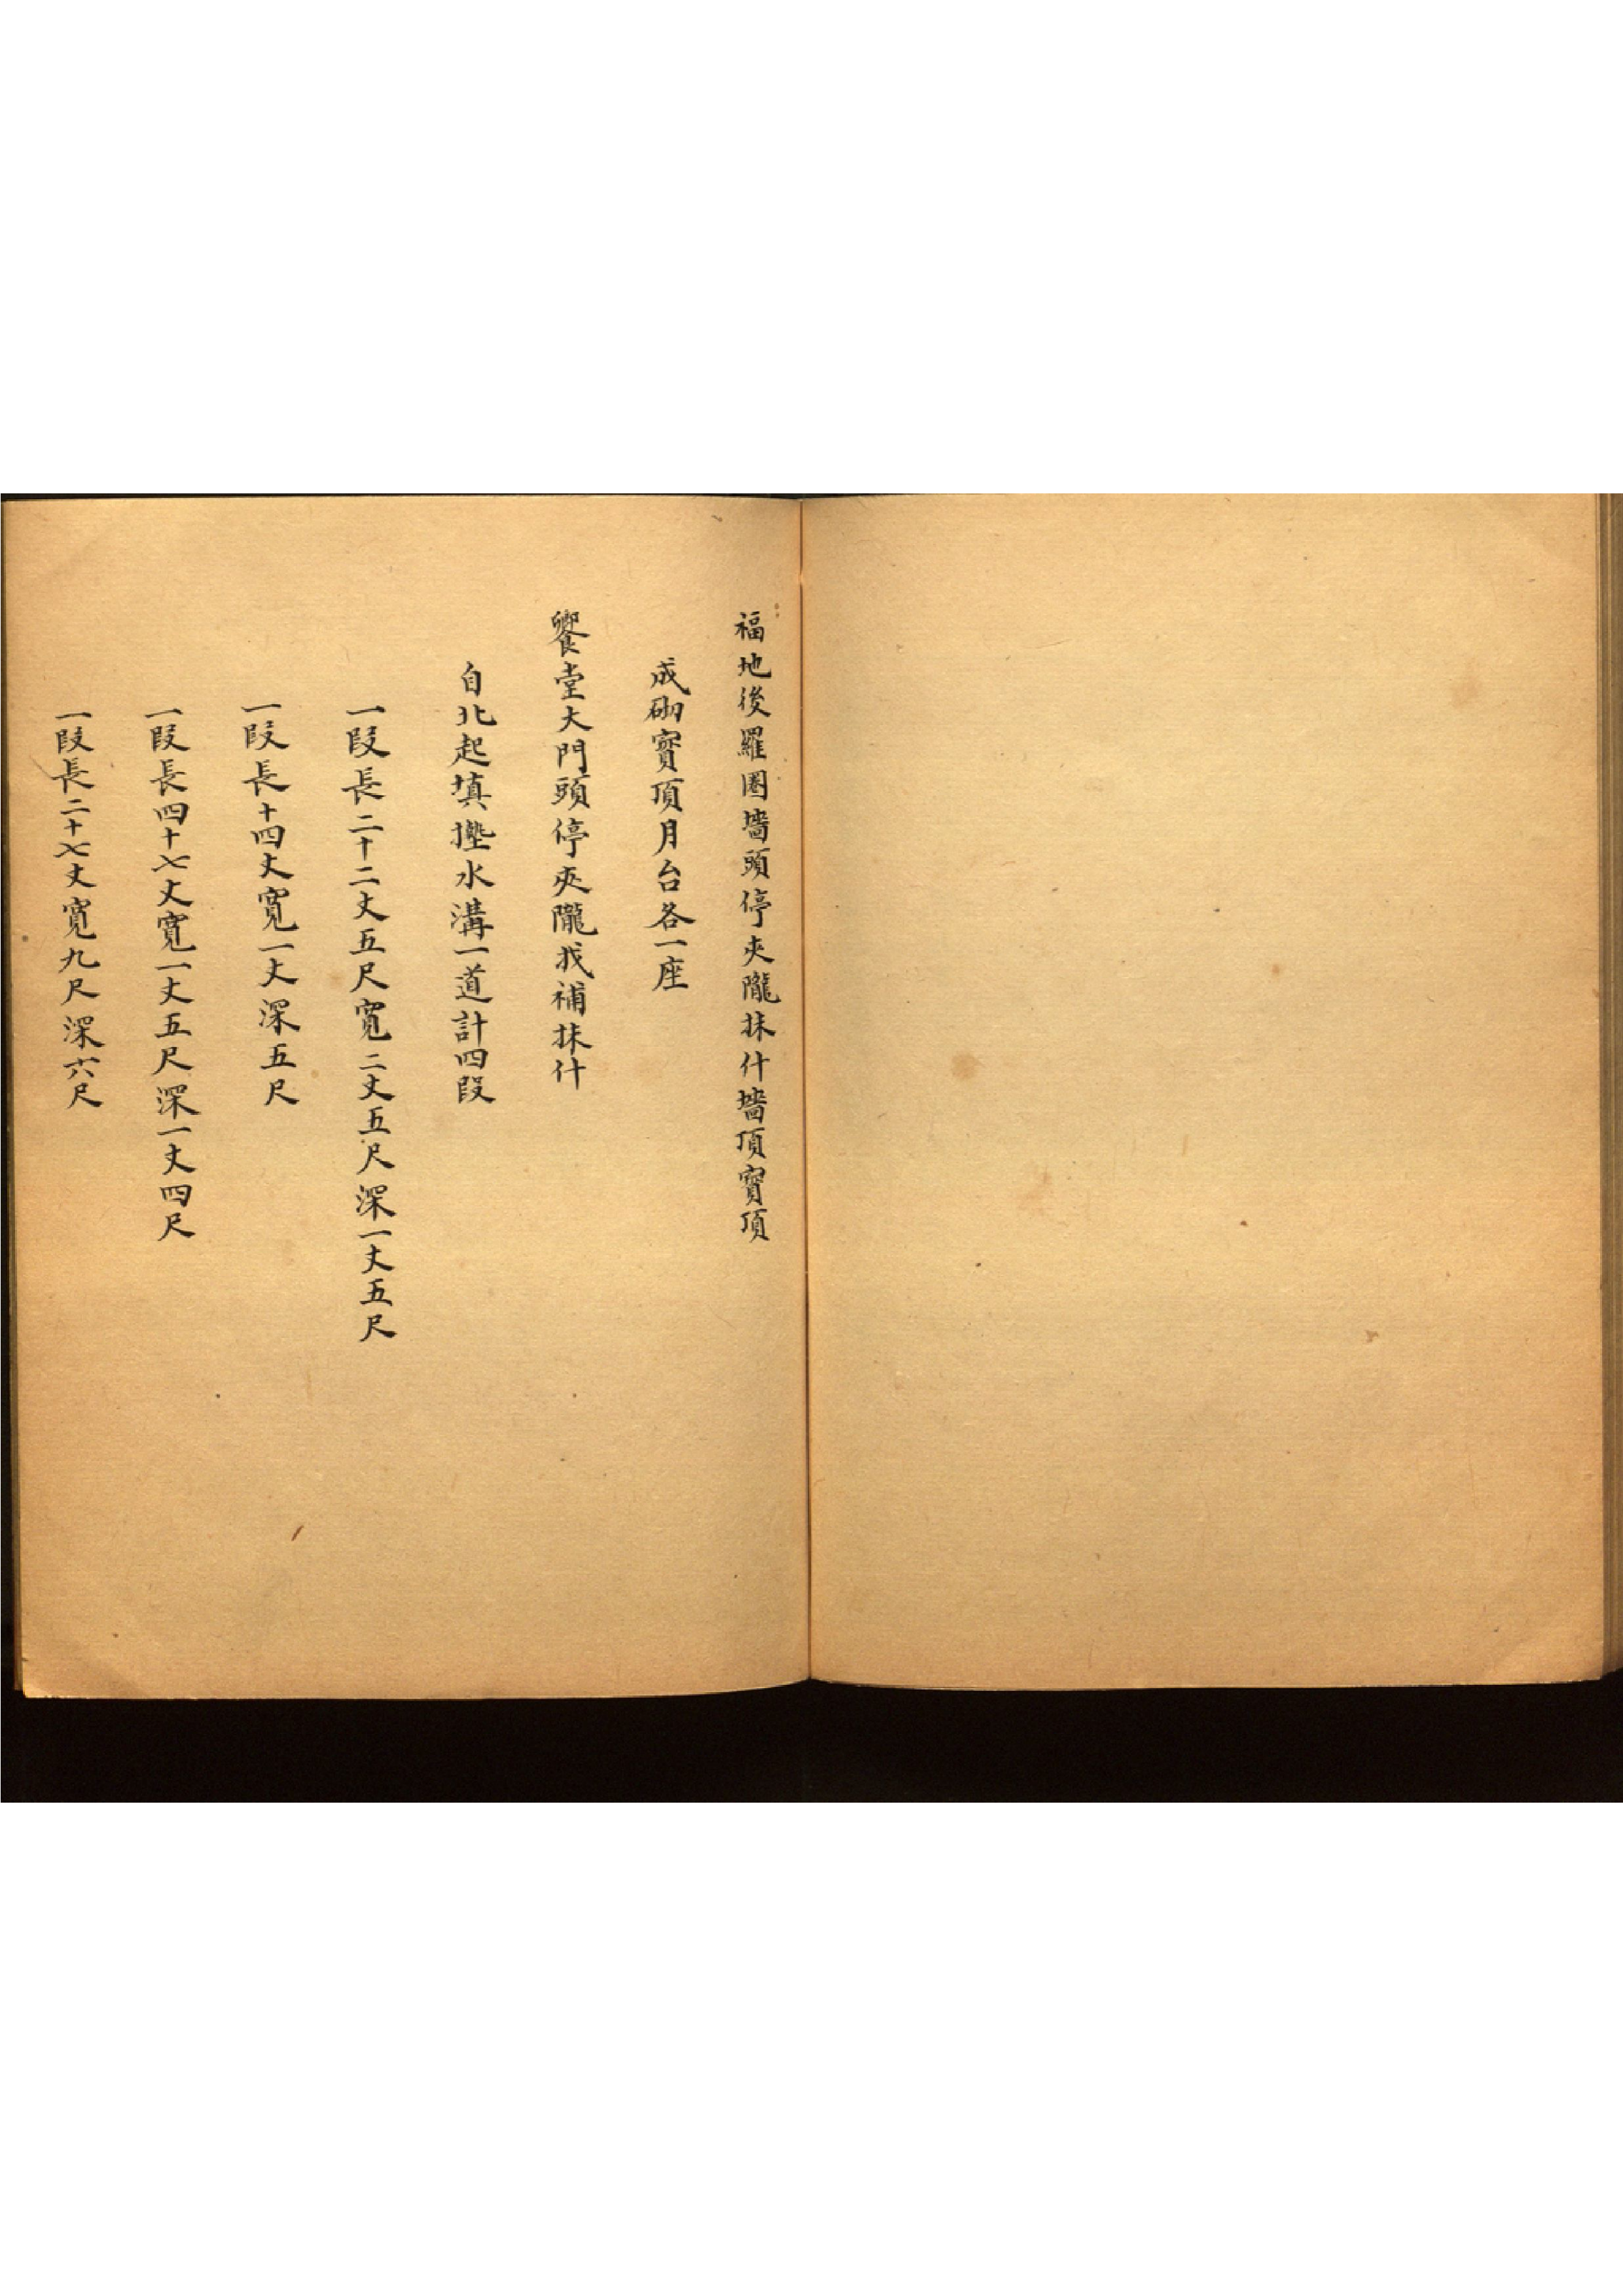 福地後羅圈墻頭停夾隴抹什墻頂寳頂
成砌寳頂月台各一座
饗堂大門頭停夾隴找補抹什
自北起填墊水溝一道計四段
一段長二十二丈五尺寬二丈五尺深一丈五尺
一段長十四丈寬一丈深五尺
一段長四十七丈寬一丈五尺深一丈四尺
一段長二十七丈寬九尺深六尺